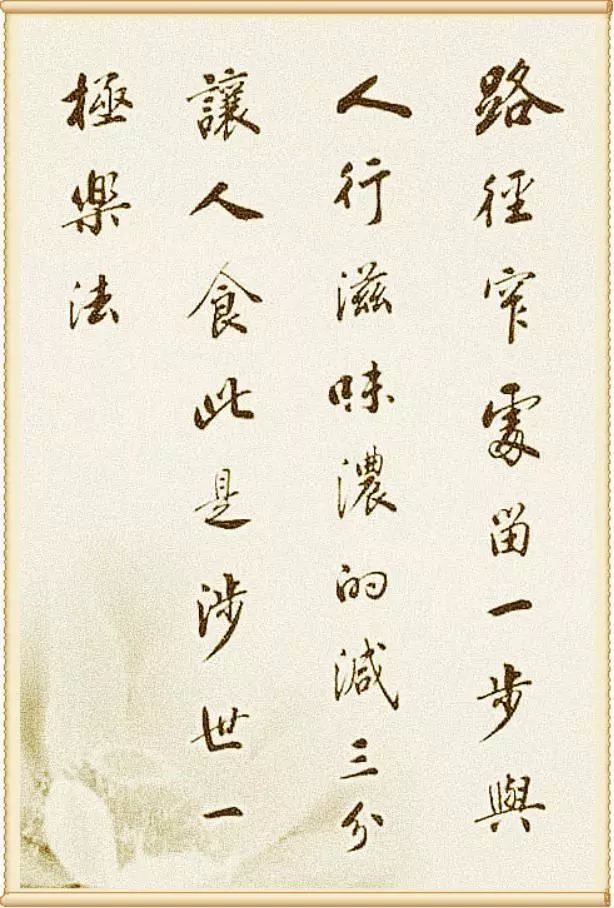 路徑窄處留一步與
人行滋味濃的減三分
讓人食此是涉世一
極樂法